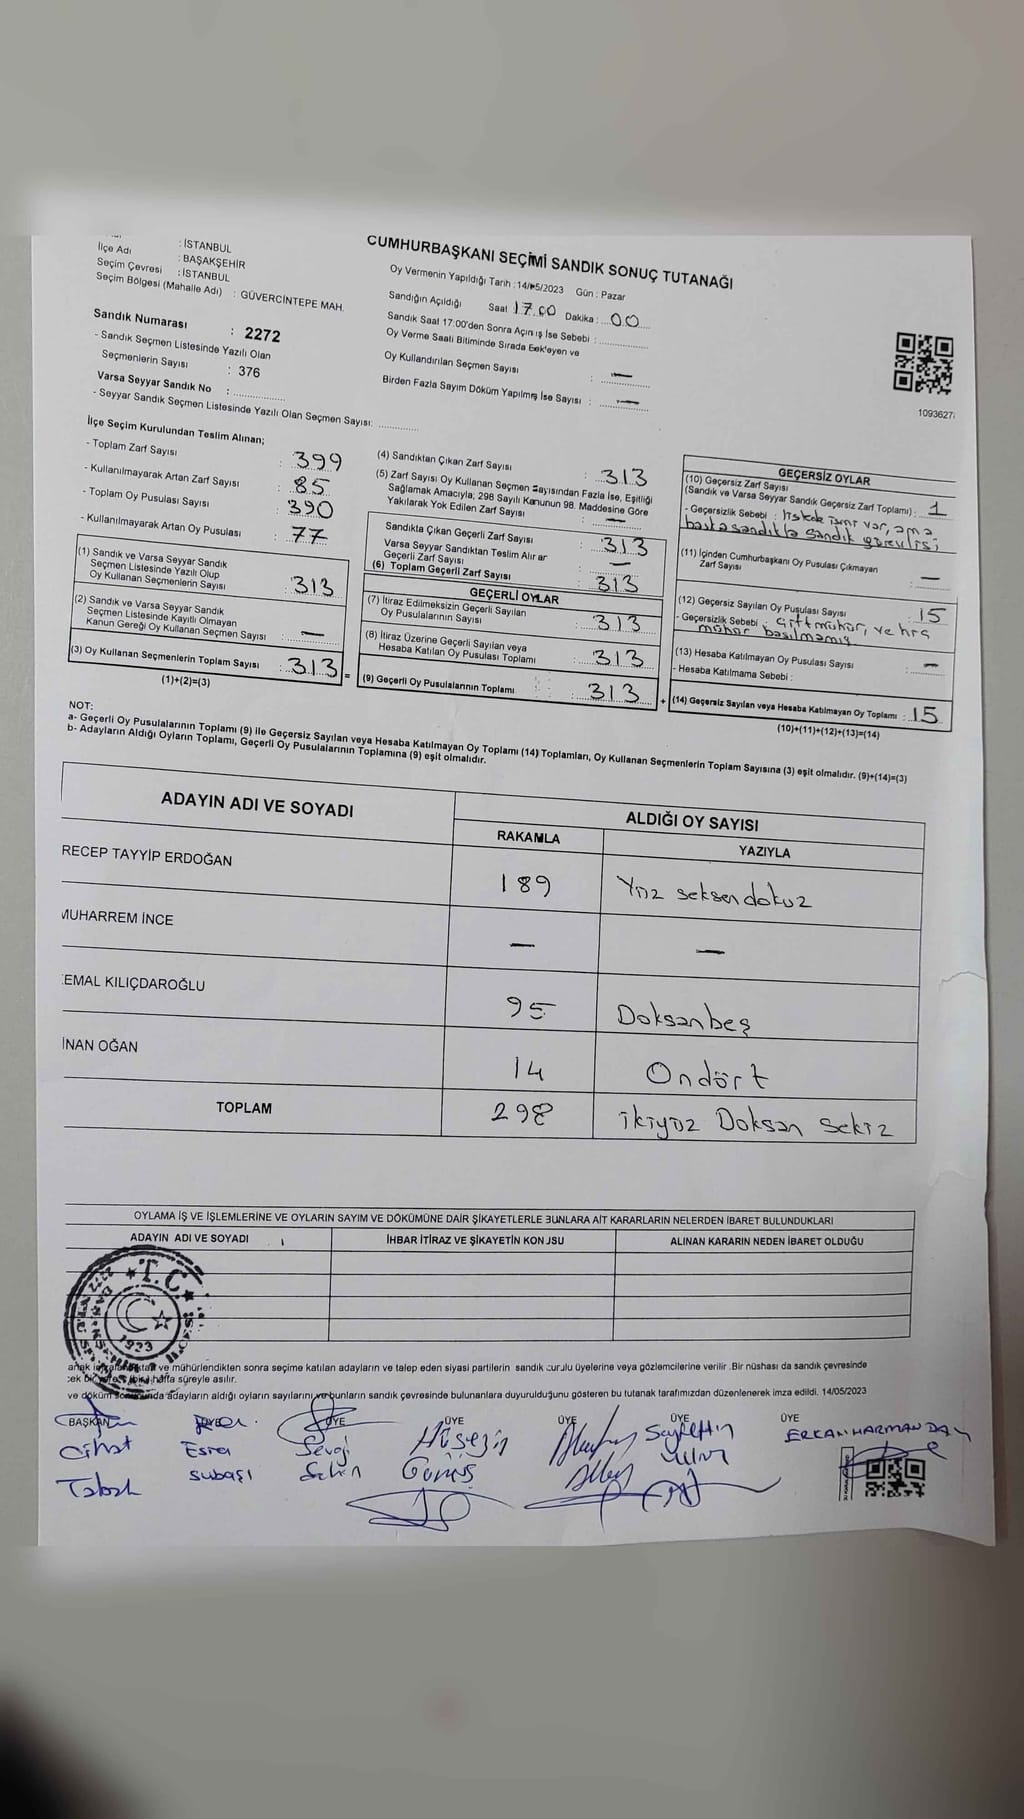 CUMHURBAŞKANI SEÇİMİ SANDIK SONUÇ TUTANAĞI
: İSTANBUL
İlçe Adı : BAŞAKŞEHİR
Seçim Çevresi : İSTANBUL
Seçim Bölgesi (Mahalle Adı) : GÜVERCİNTEPE MAH.
Oy Vermenin Yapıldığı Tarih : 14/05/2023 Gün : Pazar
Sandığın Açıldığı Saat 17.00 Dakika : 00
Sandık Saat 17:00'den Sonra Açılmış İse Sebebi :
Oy Verme Saati Bitiminde Sırada Bekleyen ve
Oy Kullandırılan Seçmen Sayısı : —
Birden Fazla Sayım Döküm Yapılmış İse Sayısı : —
Sandık Numarası : 2272
- Sandık Seçmen Listesinde Yazılı Olan
Seçmenlerin Sayısı : 376
Varsa Seyyar Sandık No :
- Seyyar Sandık Seçmen Listesinde Yazılı Olan Seçmen Sayısı:
1093627
İlçe Seçim Kurulundan Teslim Alınan;
- Toplam Zarf Sayısı : 399
- Kullanılmayarak Artan Zarf Sayısı : 85
- Toplam Oy Pusulası Sayısı : 390
- Kullanılmayarak Artan Oy Pusulası : 77
(1) Sandık ve Varsa Seyyar Sandık
Seçmen Listesinde Yazılı Olup
Oy Kullanan Seçmenlerin Sayısı : 313
(2) Sandık ve Varsa Seyyar Sandık
Seçmen Listesinde Kayıtlı Olmayan
Kanun Gereği Oy Kullanan Seçmen Sayısı : —
(3) Oy Kullanan Seçmenlerin Toplam Sayısı : 313 =
(1)+(2)=(3)
(4) Sandıktan Çıkan Zarf Sayısı : 313
(5) Zarf Sayısı Oy Kullanan Seçmen Sayısından Fazla İse, Eşitliği
Sağlamak Amacıyla; 298 Sayılı Kanunun 98. Maddesine Göre
Yakılarak Yok Edilen Zarf Sayısı : —
Sandıkta Çıkan Geçerli Zarf Sayısı : 313
Varsa Seyyar Sandıktan Teslim Alınan
Geçerli Zarf Sayısı : —
(6) Toplam Geçerli Zarf Sayısı : 313
GEÇERLİ OYLAR
(7) İtiraz Edilmeksizin Geçerli Sayılan
Oy Pusulalarının Sayısı : 313
(8) İtiraz Üzerine Geçerli Sayılan veya
Hesaba Katılan Oy Pusulası Toplamı : 313
(9) Geçerli Oy Pusulalarının Toplamı : 313 +
GEÇERSİZ OYLAR
(10) Geçersiz Zarf Sayısı
(Sandık ve Varsa Seyyar Sandık Geçersiz Zarf Toplamı) : 1
- Geçersizlik Sebebi : listede ismi var, ama
başka sandıkta sandık görevlisi
(11) İçinden Cumhurbaşkanı Oy Pusulası Çıkmayan
Zarf Sayısı : —
(12) Geçersiz Sayılan Oy Pusulası Sayısı : 15
- Geçersizlik Sebebi : Çift mühür, ve hiç
mühür basılmamış
(13) Hesaba Katılmayan Oy Pusulası Sayısı : —
- Hesaba Katılmama Sebebi :
(14) Geçersiz Sayılan veya Hesaba Katılmayan Oy Toplamı : 15
(10)+(11)+(12)+(13)=(14)
NOT:
a- Geçerli Oy Pusulalarının Toplamı (9) ile Geçersiz Sayılan veya Hesaba Katılmayan Oy Toplamı (14) Toplamları, Oy Kullanan Seçmenlerin Toplam Sayısına (3) eşit olmalıdır. (9)+(14)=(3)
b- Adayların Aldığı Oyların Toplamı, Geçerli Oy Pusulalarının Toplamına (9) eşit olmalıdır.
ADAYIN ADI VE SOYADI ALDIĞI OY SAYISI
RAKAMLA YAZIYLA
RECEP TAYYİP ERDOĞAN 189 Yüz seksen dokuz
MUHARREM İNCE — —
EMAL KILIÇDAROĞLU 95 Doksanbeş
İNAN OĞAN 14 Ondört
TOPLAM 298 ikiyüz Doksan sekiz
OYLAMA İŞ VE İŞLEMLERİNE VE OYLARIN SAYIM VE DÖKÜMÜNE DAİR ŞİKAYETLERLE BUNLARA AİT KARARLARIN NELERDEN İBARET BULUNDUKLARI
ADAYIN ADI VE SOYADI İHBAR İTİRAZ VE ŞİKAYETİN KONUSU ALINAN KARARIN NEDEN İBARET OLDUĞU
T.C.
1923
ve mühürlendikten sonra seçime katılan adayların ve talep eden siyasi partilerin sandık kurulu üyelerine veya gözlemcilerine verilir. Bir nüshası da sandık çevresinde
hafta süreyle asılır.
ve döküm sonucunda adayların aldığı oyların sayılarını ve bunların sandık çevresinde bulunanlara duyurulduğunu gösteren bu tutanak tarafımızdan düzenlenerek imza edildi. 14/05/2023
BAŞKAN ÜYE ÜYE ÜYE ÜYE ÜYE ÜYE
Cihat Esra Sevgi Hüseyin Seyfettin ERKAN HARMANDALI
subaşı Gümüş